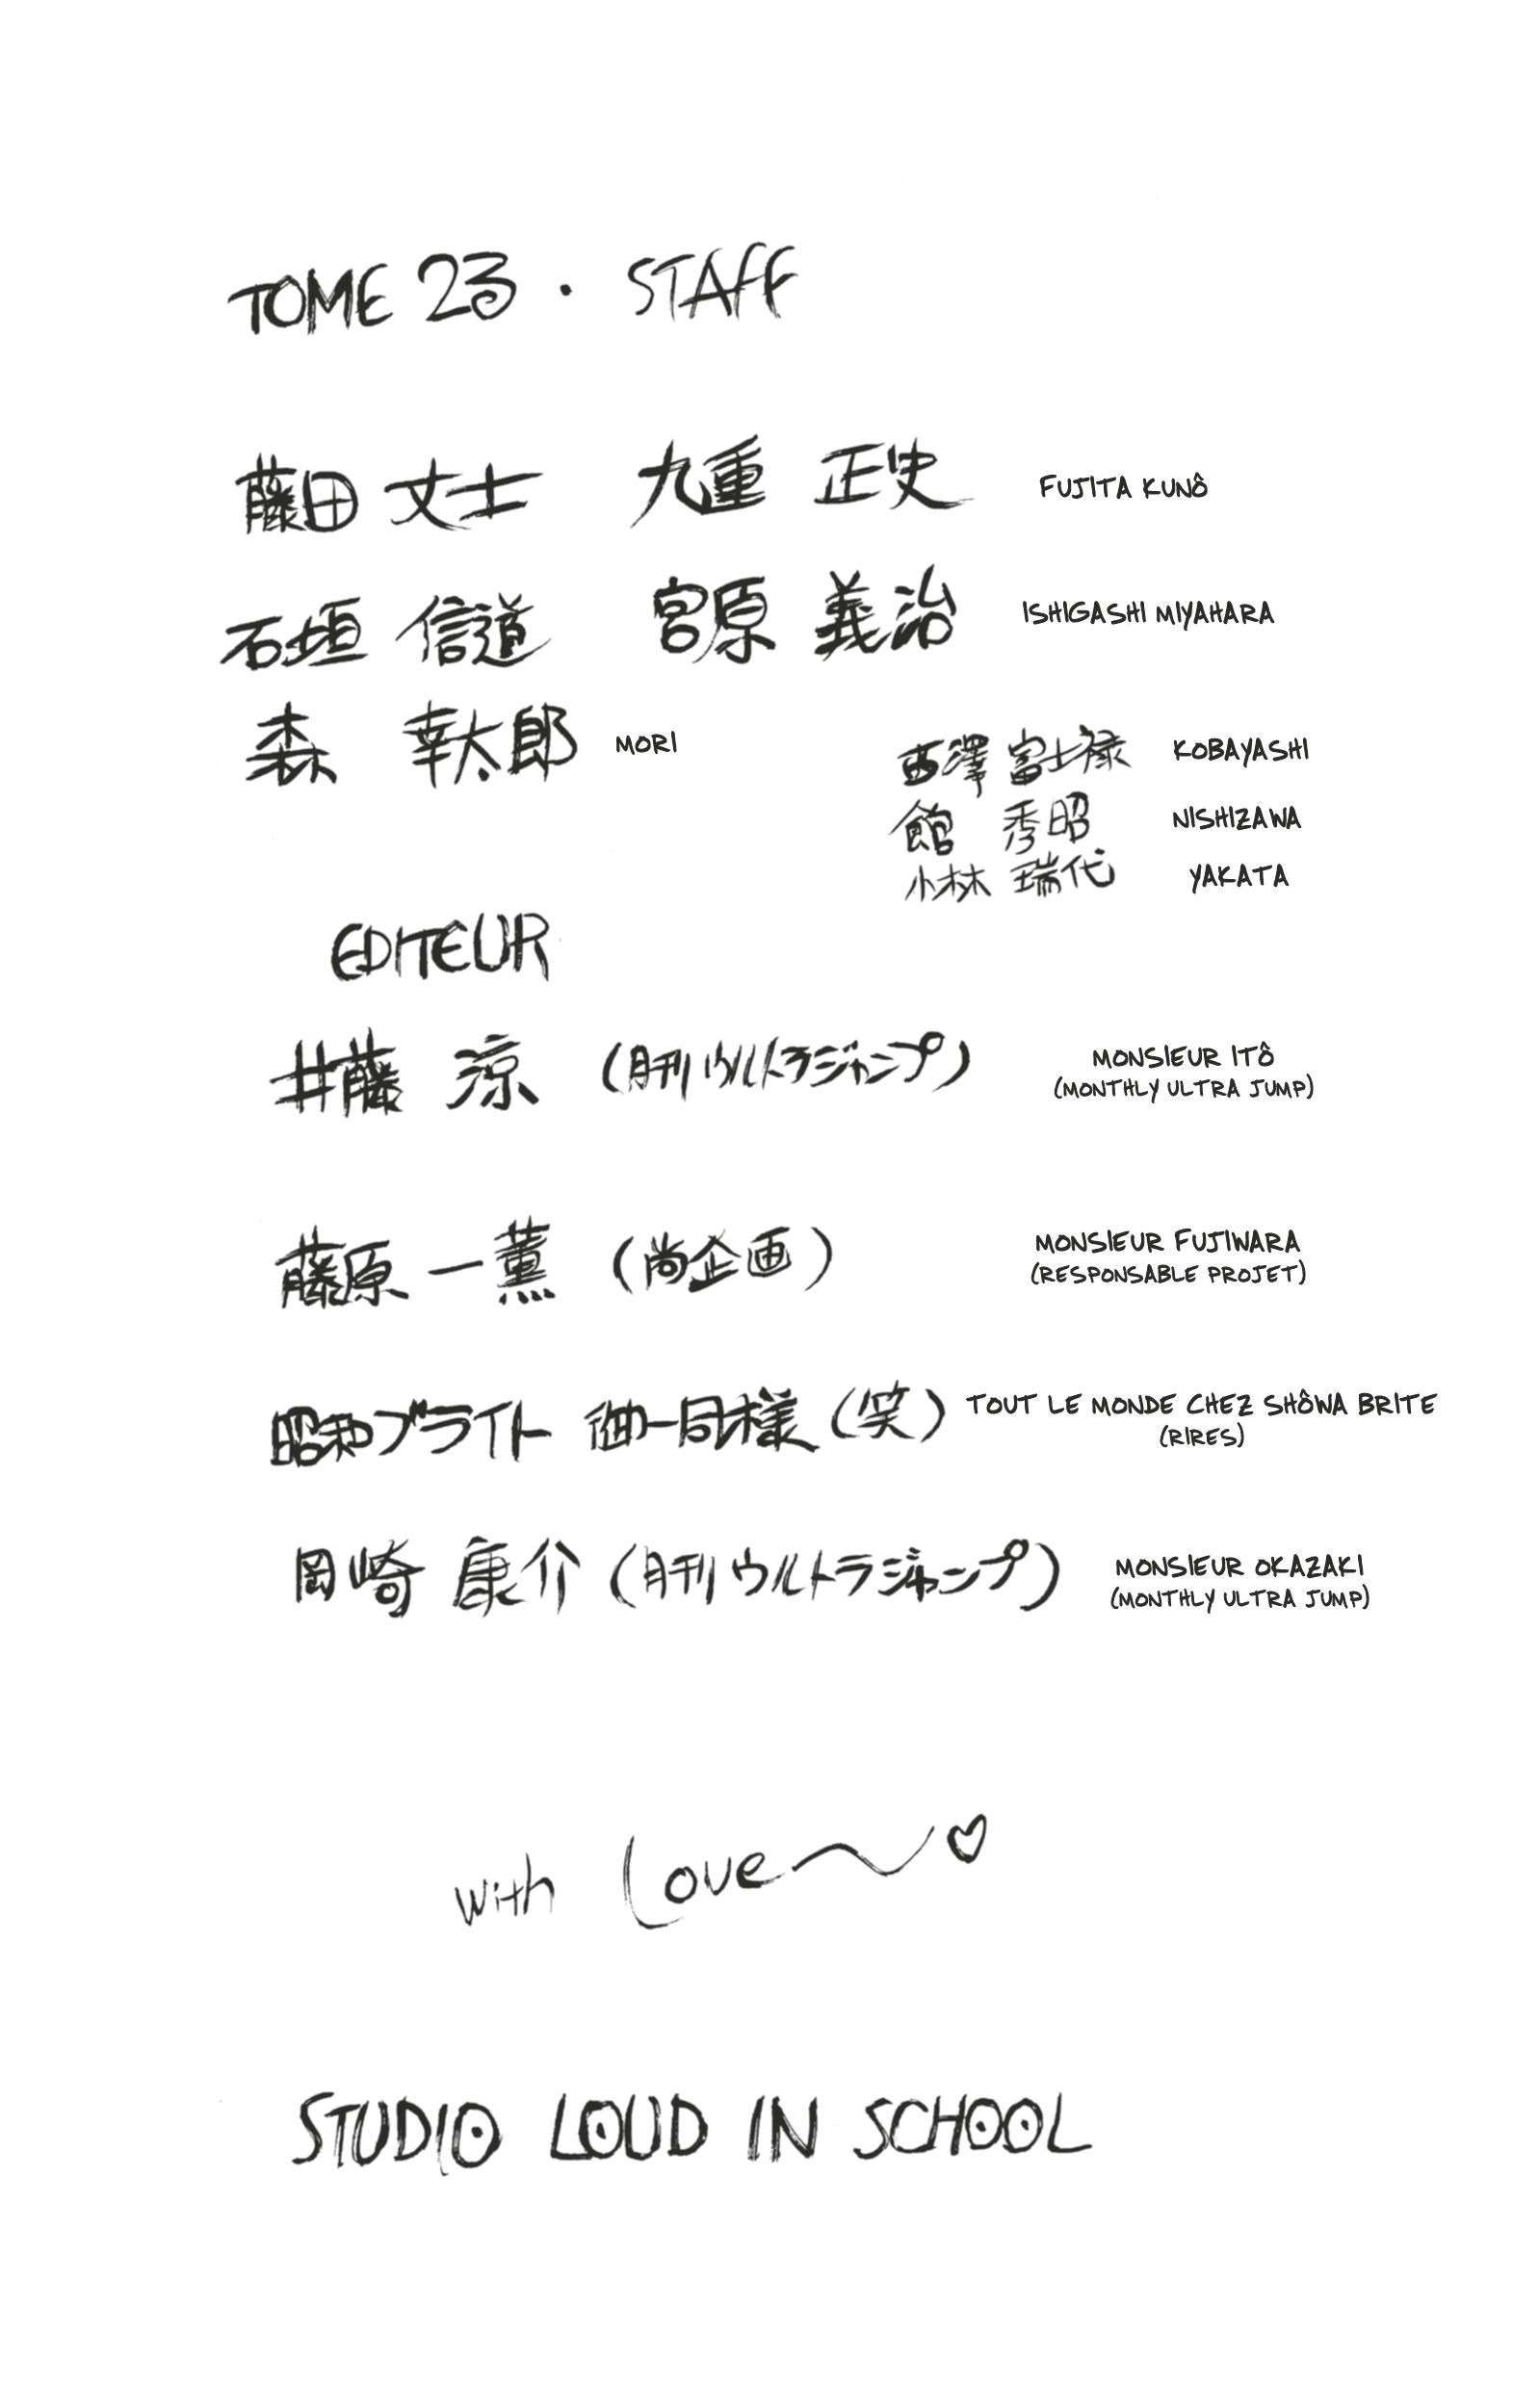 TOME 23 . STAFF
藤田 丈士 九重 正史 FUJITA KUNÔ
石垣 信道 宮原 義治 ISHIGASHI MIYAHARA
森 幸太郎 MORI
西澤 富士禄 KOBAYASHI
館 秀昭 NISHIZAWA
小林 瑞代 YAKATA
EDITEUR
井藤 涼 (月刊ウルトラジャンプ) MONSIEUR ITÔ
(MONTHLY ULTRA JUMP)
藤原 一薫 (尚企画) MONSIEUR FUJIWARA
(RESPONSABLE PROJET)
昭和ブライト 御一同様 (笑) TOUT LE MONDE CHEZ SHÔWA BRITE
(RIRES)
岡崎 康介 (月刊ウルトラジャンプ) MONSIEUR OKAZAKI
(MONTHLY ULTRA JUMP)
with Love〜♡
STUDIO LOUD IN SCHOOL